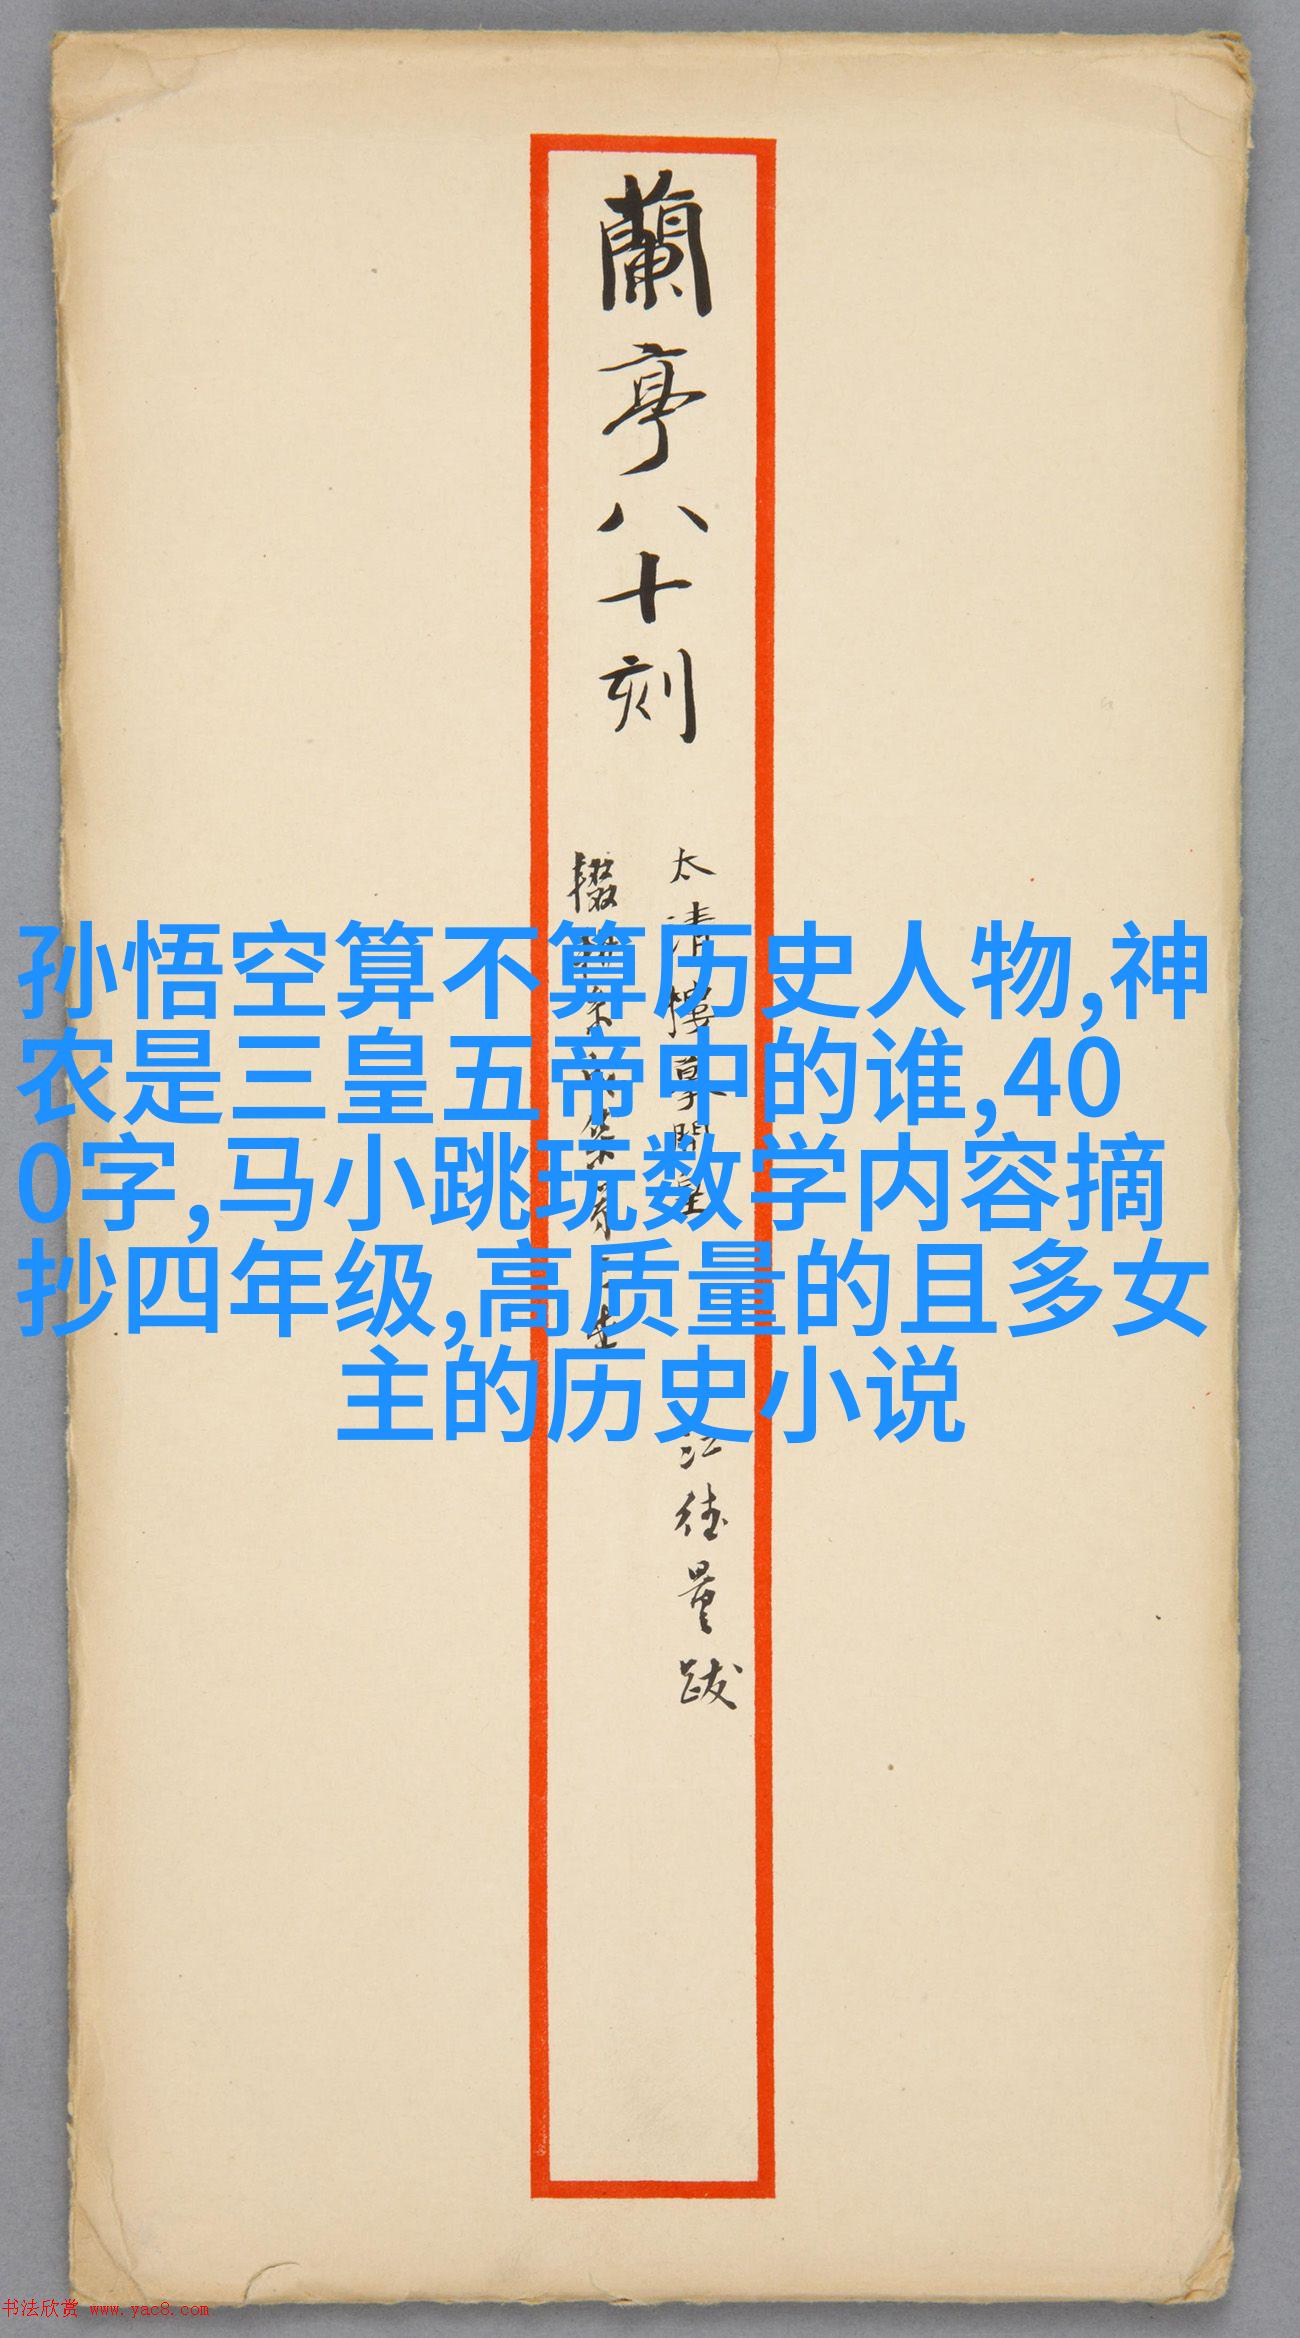 蘭亭八十刻
太清樓
江德量跋
孙悟空算不算历史人物,神
农是三皇五帝中的谁,40
0字,马小跳玩数学内容摘
抄四年级,高质量的且多女
主的历史小说
书法欣赏 www.yac8.com